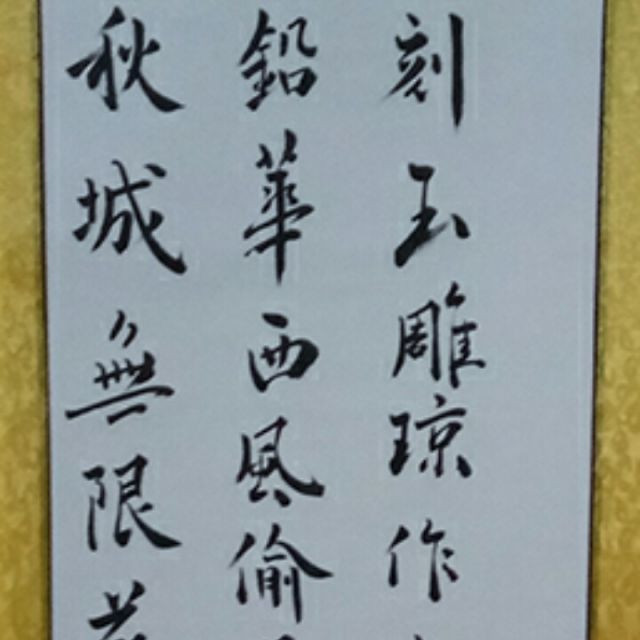 刻玉雕琼作
鉛華西風偷
秋城無限